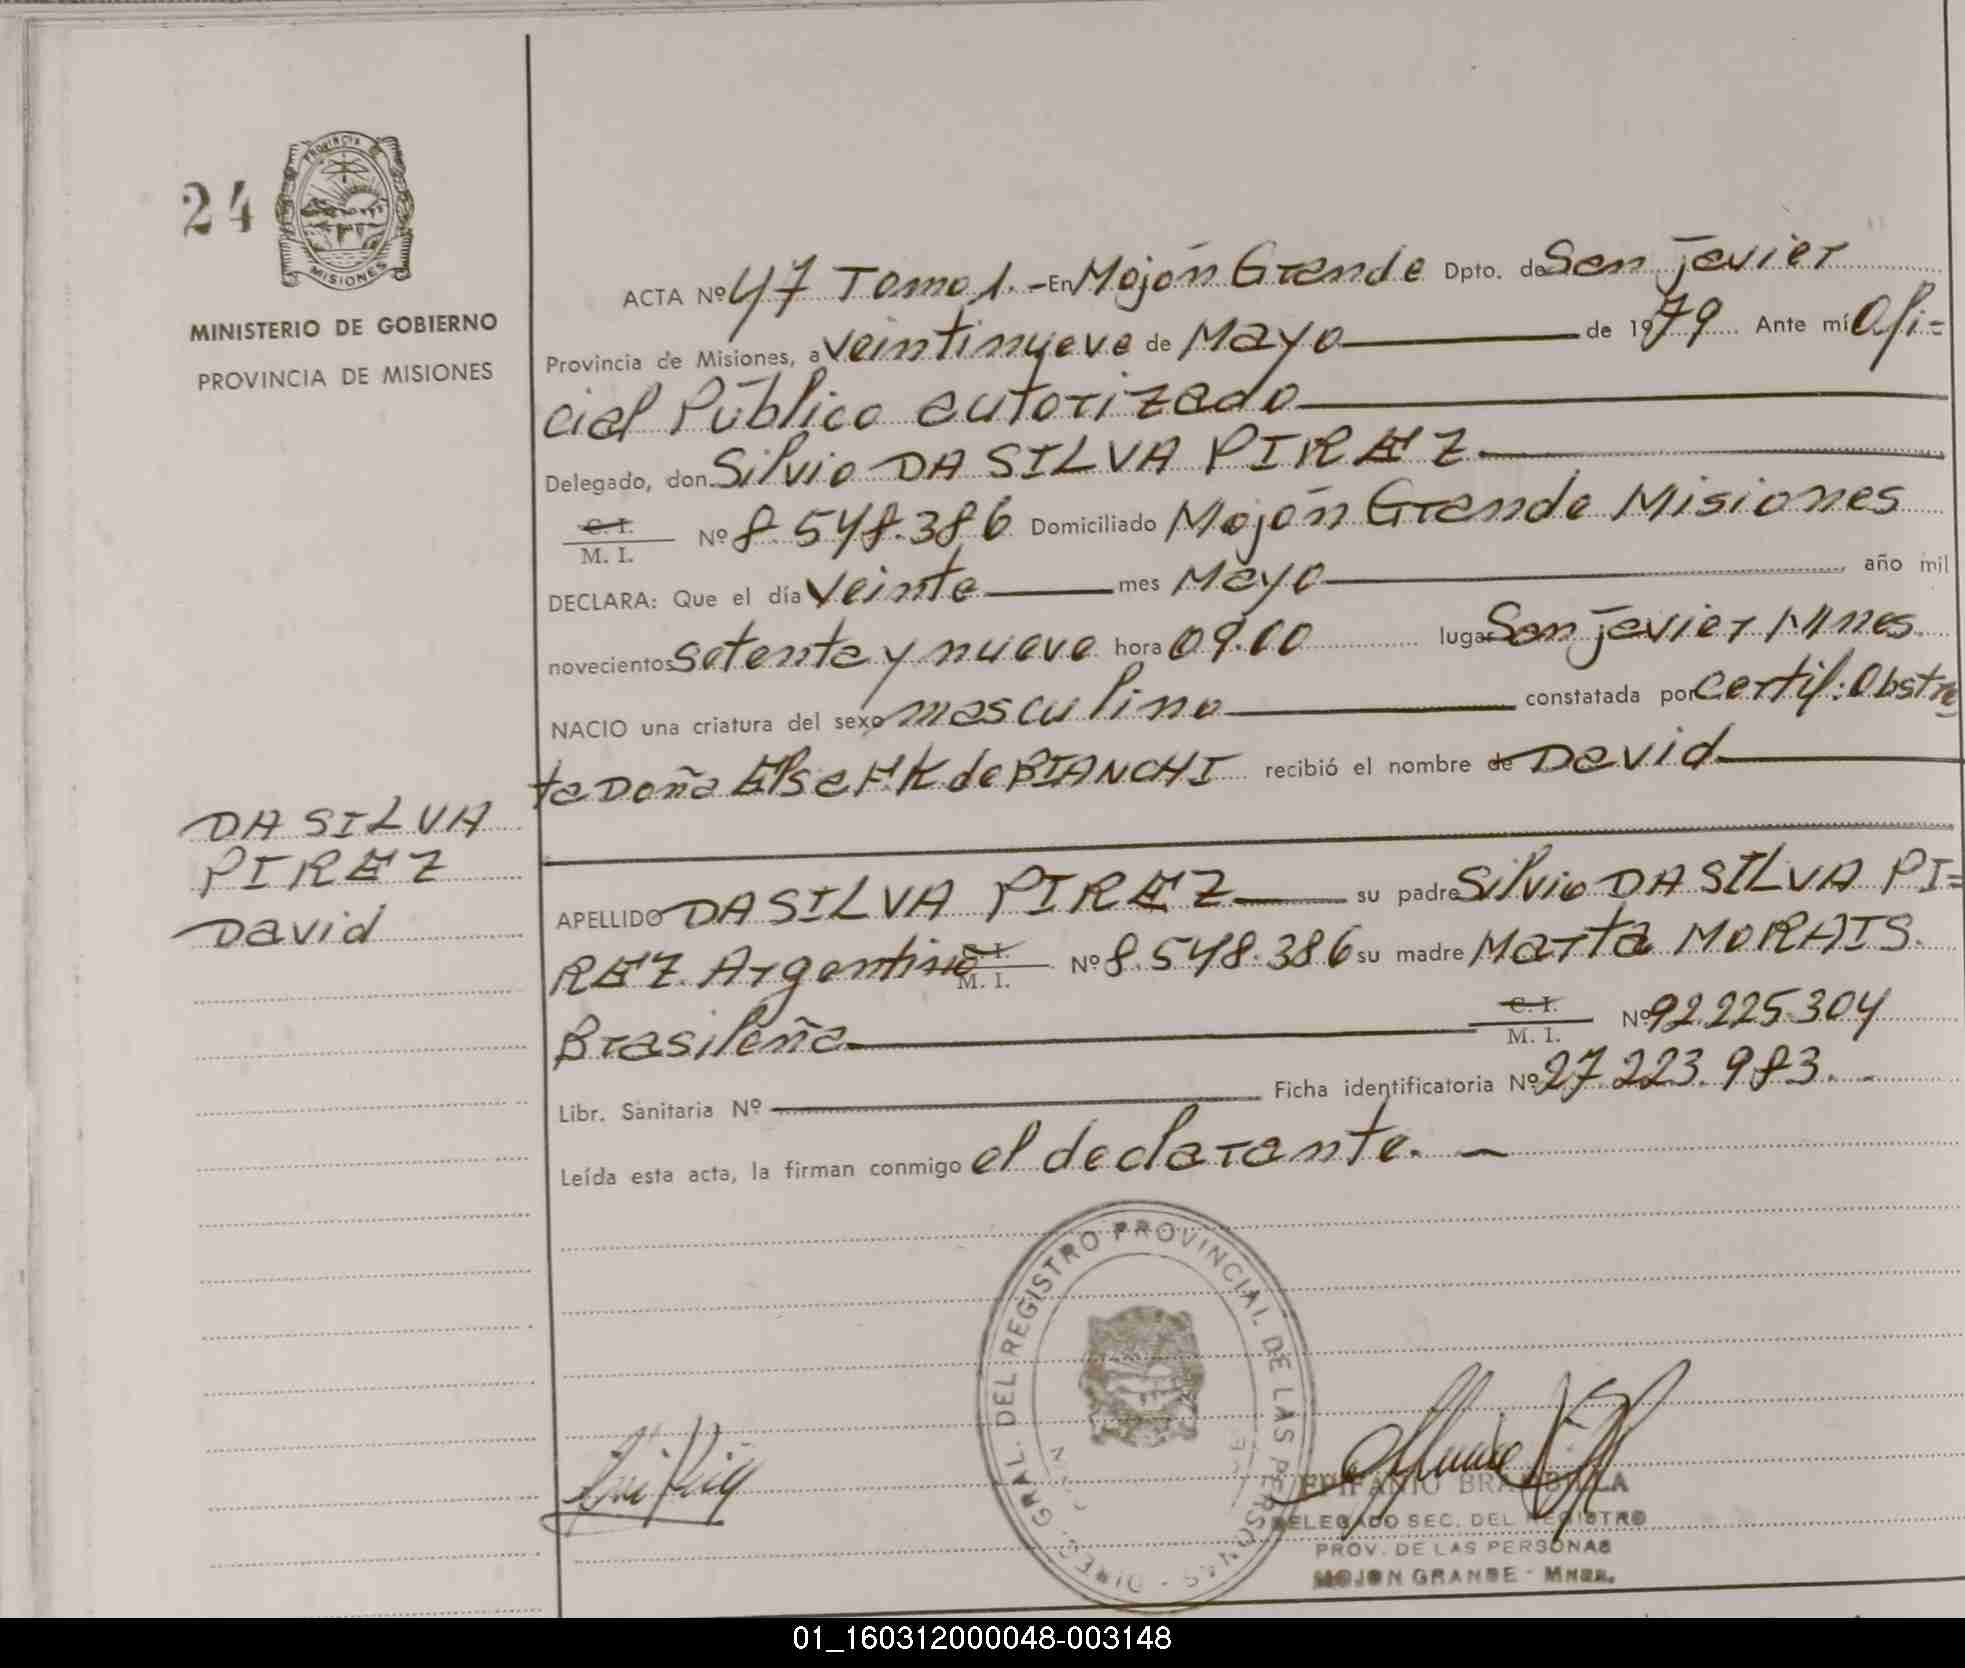 24
PROVINCIA
MISIONES
MINISTERIO DE GOBIERNO
PROVINCIA DE MISIONES
ACTA Nº 47 Tomo 1.- En Mojón Grande Dpto. de San Javier
Provincia de Misiones, a veintinueve de Mayo de 1979 Ante mí Ofi=
cial Público autorizado
Delegado, don Silvio DA SILVA PIREZ
C. I.
M. I. Nº 8.548.386 Domiciliado Mojón Grande Misiones
DECLARA: Que el día veinte mes Mayo, año mil
novecientos setenta y nueve hora 09.00 lugar San Javier Mnes.
NACIO una criatura del sexo masculino constatada por Certif: Obstre
ta Doña Elsa F. K de BIANCHI recibió el nombre de David
DA SILVA
PIREZ
David
APELLIDO DA SILVA PIREZ su padre Silvio DA SILVA PI=
REZ. Argentino C. I. M. I. Nº 8.548.386 su madre Marta MORAIS.
Brasileña C. I. M. I. Nº 92.225.304
Libr. Sanitaria Nº Ficha identificatoria Nº 27.223.983.-
Leída esta acta, la firman conmigo el declarante.-
DIREC. GRAL. DEL REGISTRO PROVINCIAL DE LAS PERSONAS
EPIFANIO
DELEGADO SEC. DEL REGISTRO
PROV. DE LAS PERSONAS
MOJON GRANDE - Mnes.
01_160312000048-003148